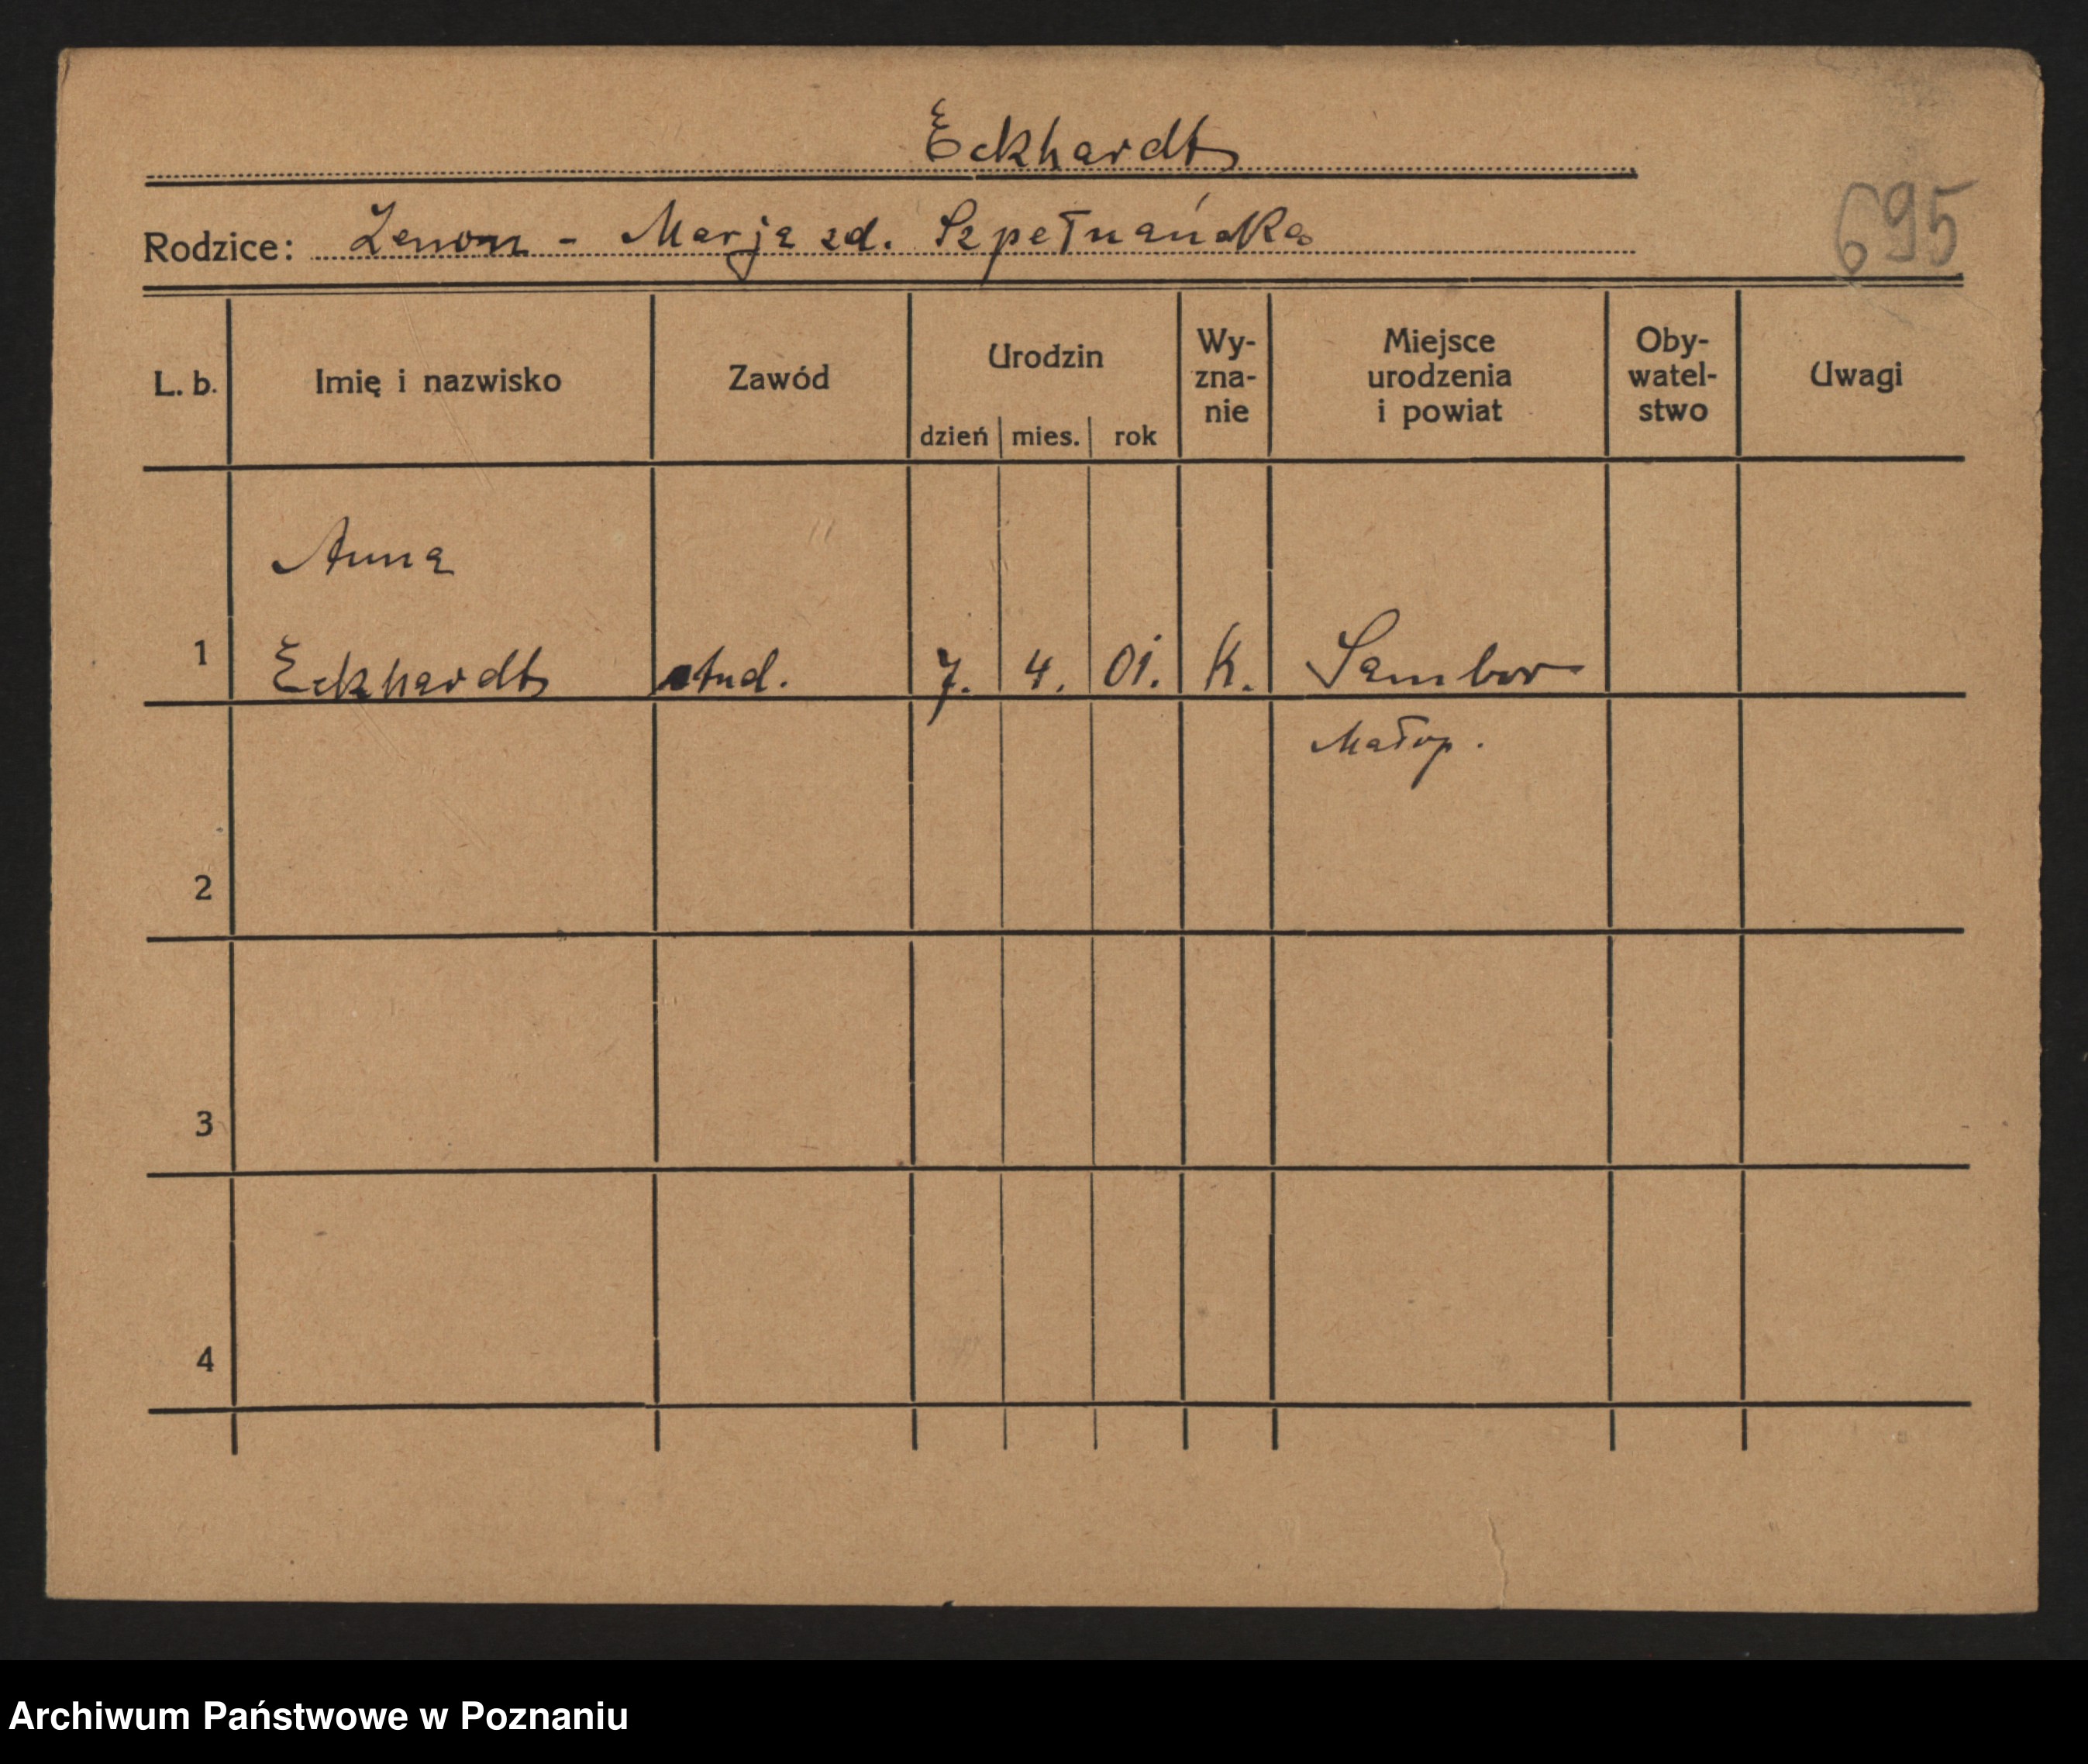 Eckhardt
695
Rodzice: Zenon - Marja zd. Szpetnańska
L. b. Imię i nazwisko Zawód Urodzin dzień mies. rok Wy-zna-nie Miejsce urodzenia i powiat Oby-watel-stwo Uwagi
Anna
1 Eckhardt stud. 7. 4. 01. K. Sambor
Małop.
2
3
4
Archiwum Państwowe w Poznaniu